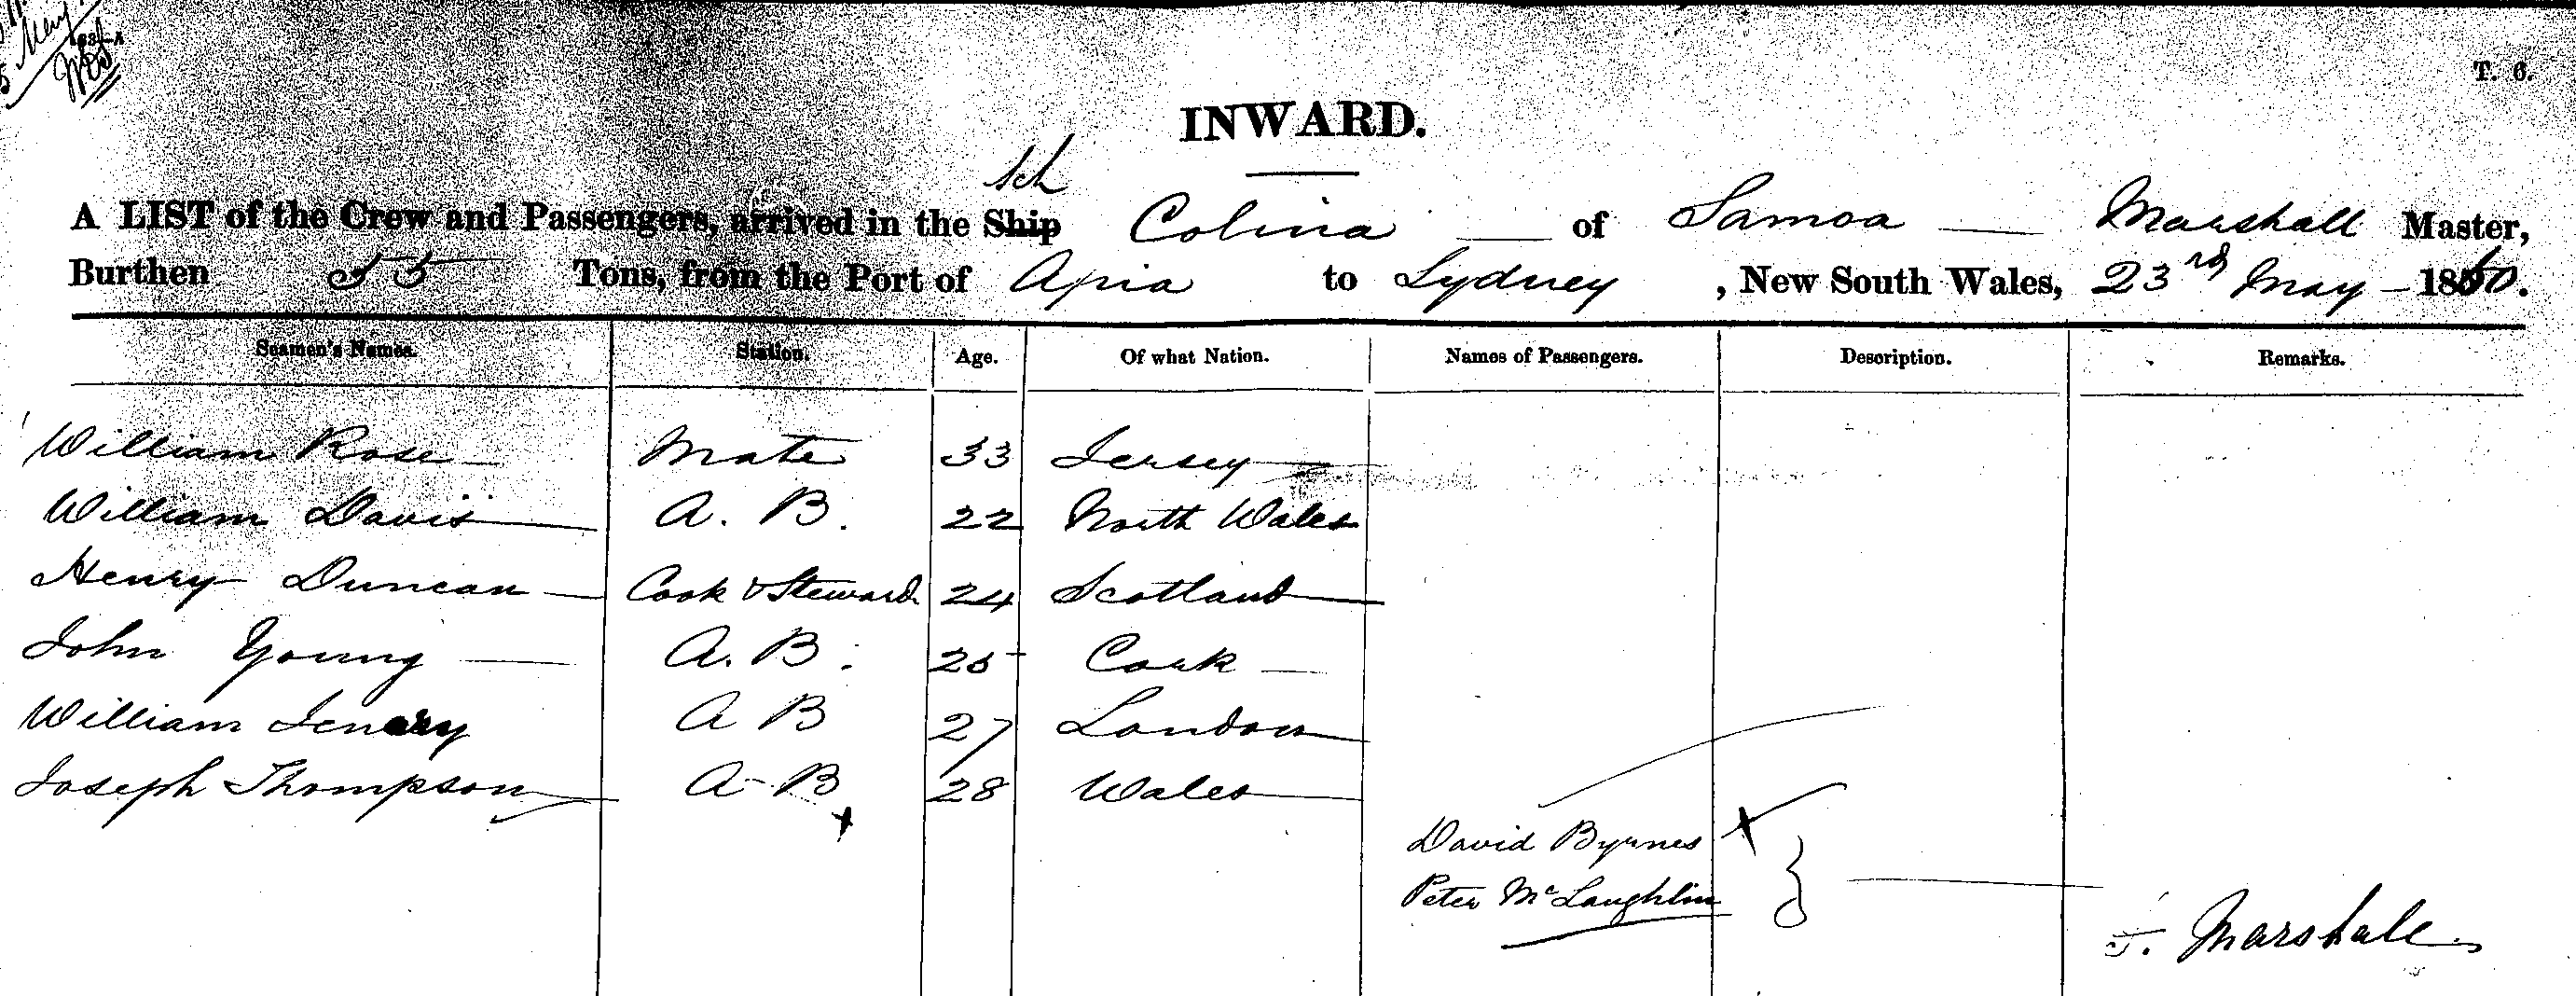 May
T. 6.
INWARD.
Sch
A LIST of the Crew and Passengers, arrived in the Ship Colina of Samoa Marshall Master,
Burthen 55 Tons, from the Port of Apia to Sydney, New South Wales, 23rd May 1860.
Seamen's Names. Station. Age. Of what Nation. Names of Passengers. Description. Remarks.
William Rose Mate 33 Jersey
William Davis A. B. 22 North Wales
Henry Duncan Cook & Steward 24 Scotland
John Young A. B. 25 Cork
William A B 27 London
Joseph Thompson A B 28 Wales
David Byrnes
Peter McLaughlin
J. Marshall